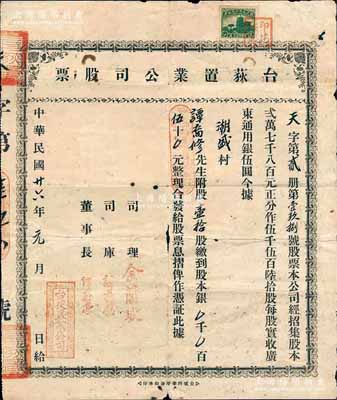 台荻置業公司股票
天字第貳册第壹玖捌號股票本公司經招集股本
弍萬七千八百元正分作伍千伍百陸拾股每股實收廣
東通用銀伍圓今據
潮盛村
譚喬修先生附股壹拾股繳到股本銀0千0百
伍十0元整現合發給股票息摺俾作憑証此據
司理
司庫
董事長
中華民國廿六年元月 日給
字第
號